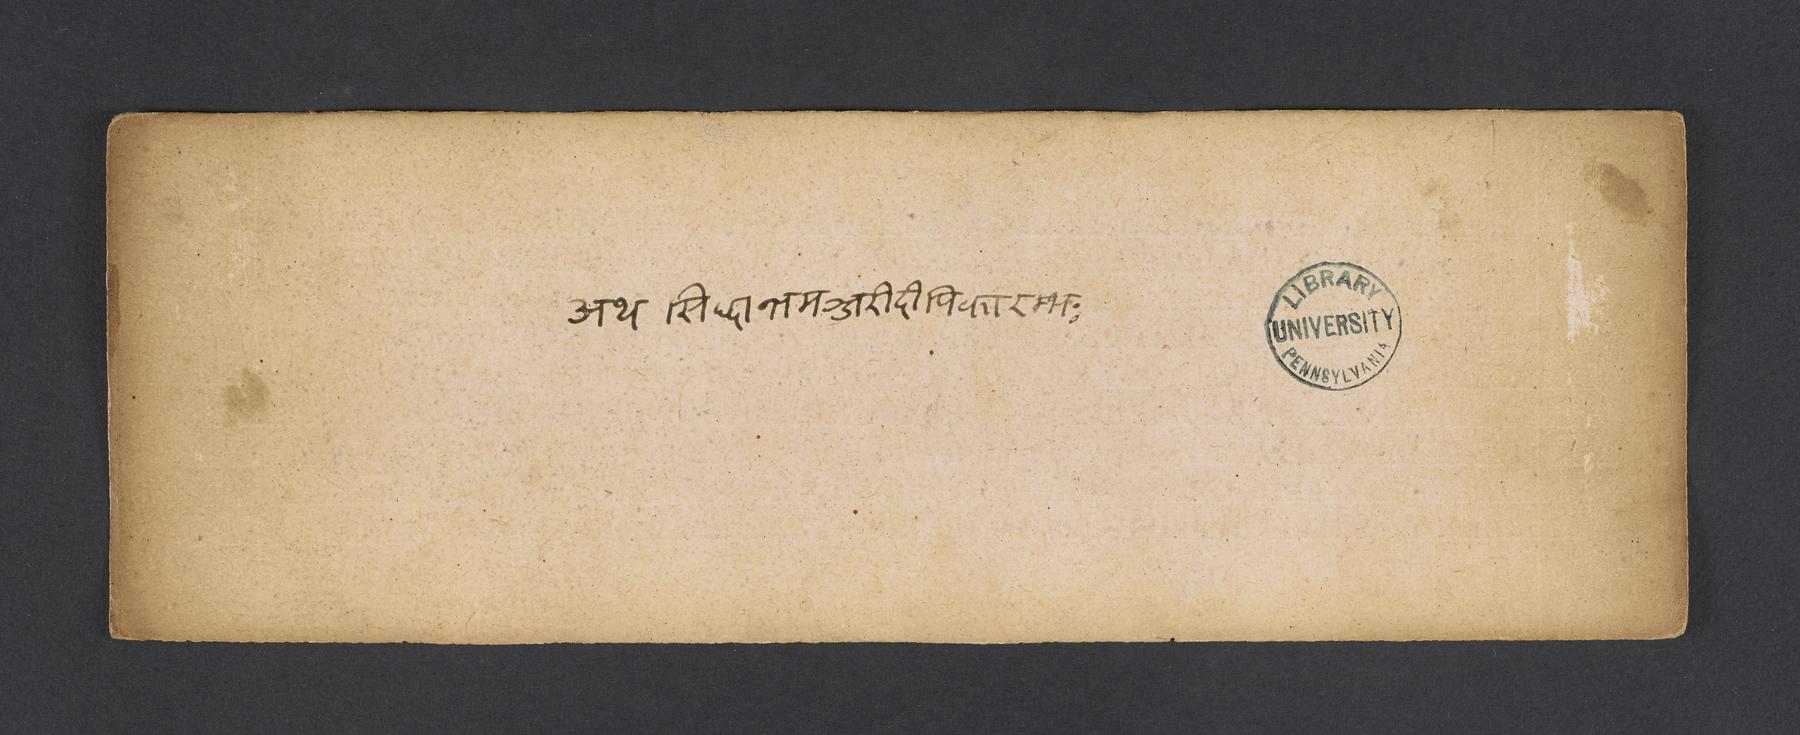 अथ सिद्धान्तमञ्जरीदीपिकारम्भः
LIBRARY
UNIVERSITY
PENNSYLVANIA